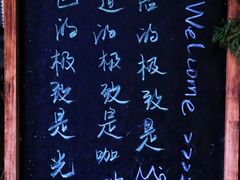 色的极致是光
道的极致是咖
的极致是Mi
Welcome >>>>